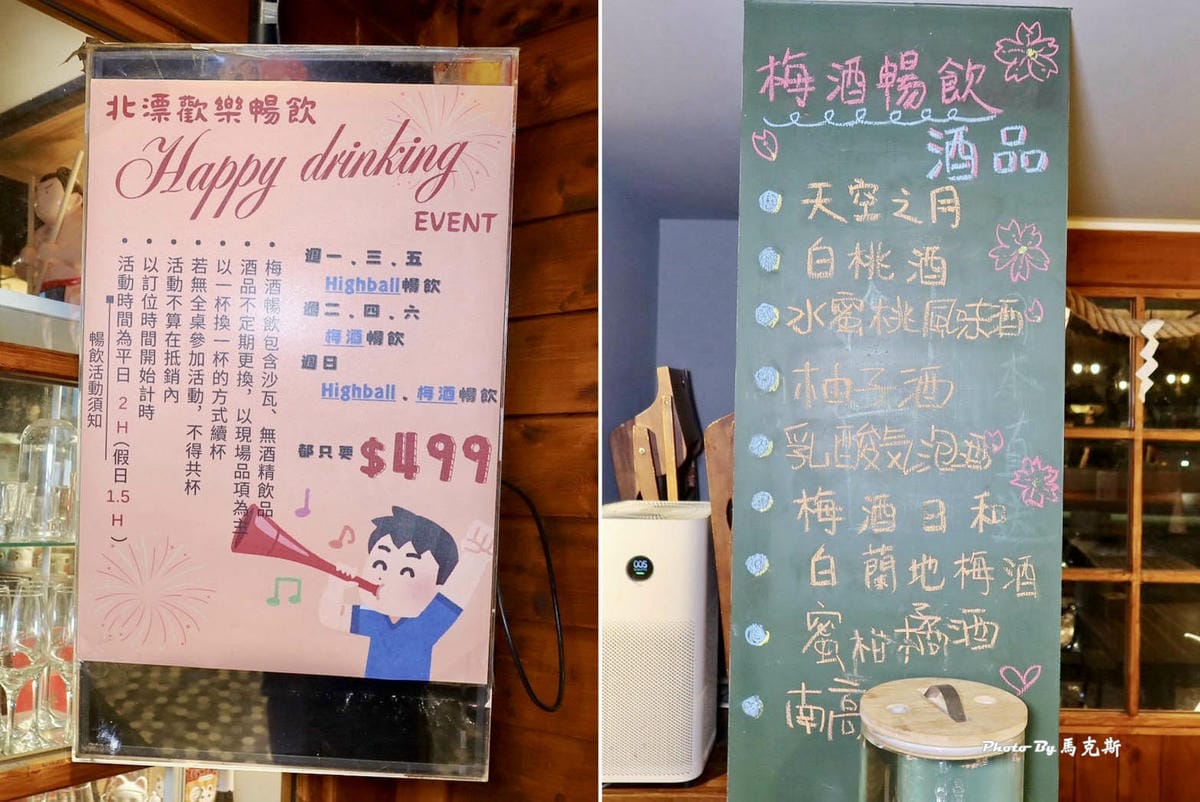 北漂歡樂暢飲
Happy drinking
EVENT
週一、三、五
Highball暢飲
週二、四、六
梅酒暢飲
週日
Highball、梅酒暢飲
都只要$499
• 梅酒暢飲包含沙瓦、無酒精飲品
• 酒品不定期更換，以現場品項為主
• 以一杯換一杯的方式續杯
• 若無全桌參加活動，不得共杯
• 活動不算在抵銷內
• 以訂位時間開始計時
• 活動時間為平日 2H（假日 1.5H）
暢飲活動須知
梅酒暢飲
酒品
天空之月
白桃酒
水蜜桃風味酒
柚子酒
乳酸気泡酒
梅酒日和
白蘭地梅酒
蜜柑橘酒
南高
005
Photo By 馬克斯